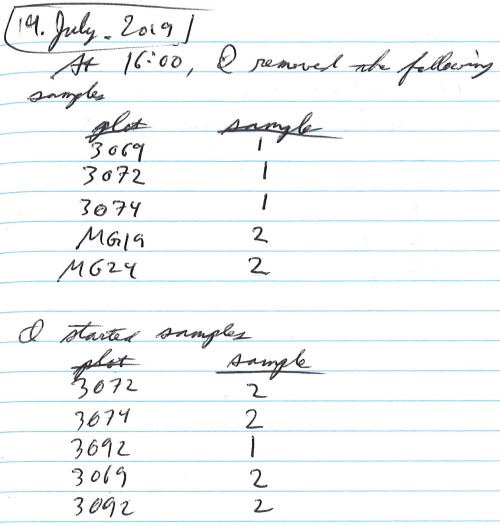 14. July. 2019
At 16:00, I removed the following
samples
plot sample
3069 1
3072 1
3074 1
MG19 2
MG24 2
I started samples
plot sample
3072 2
3074 2
3092 1
3069 2
3092 2